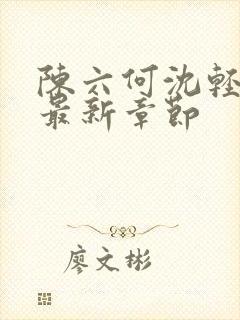 陳六何沈輕
最新章節
廖文彬